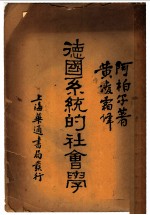 阿柏爾著
黃凌霜譯
德國系統的社會學
上海華通書局發行